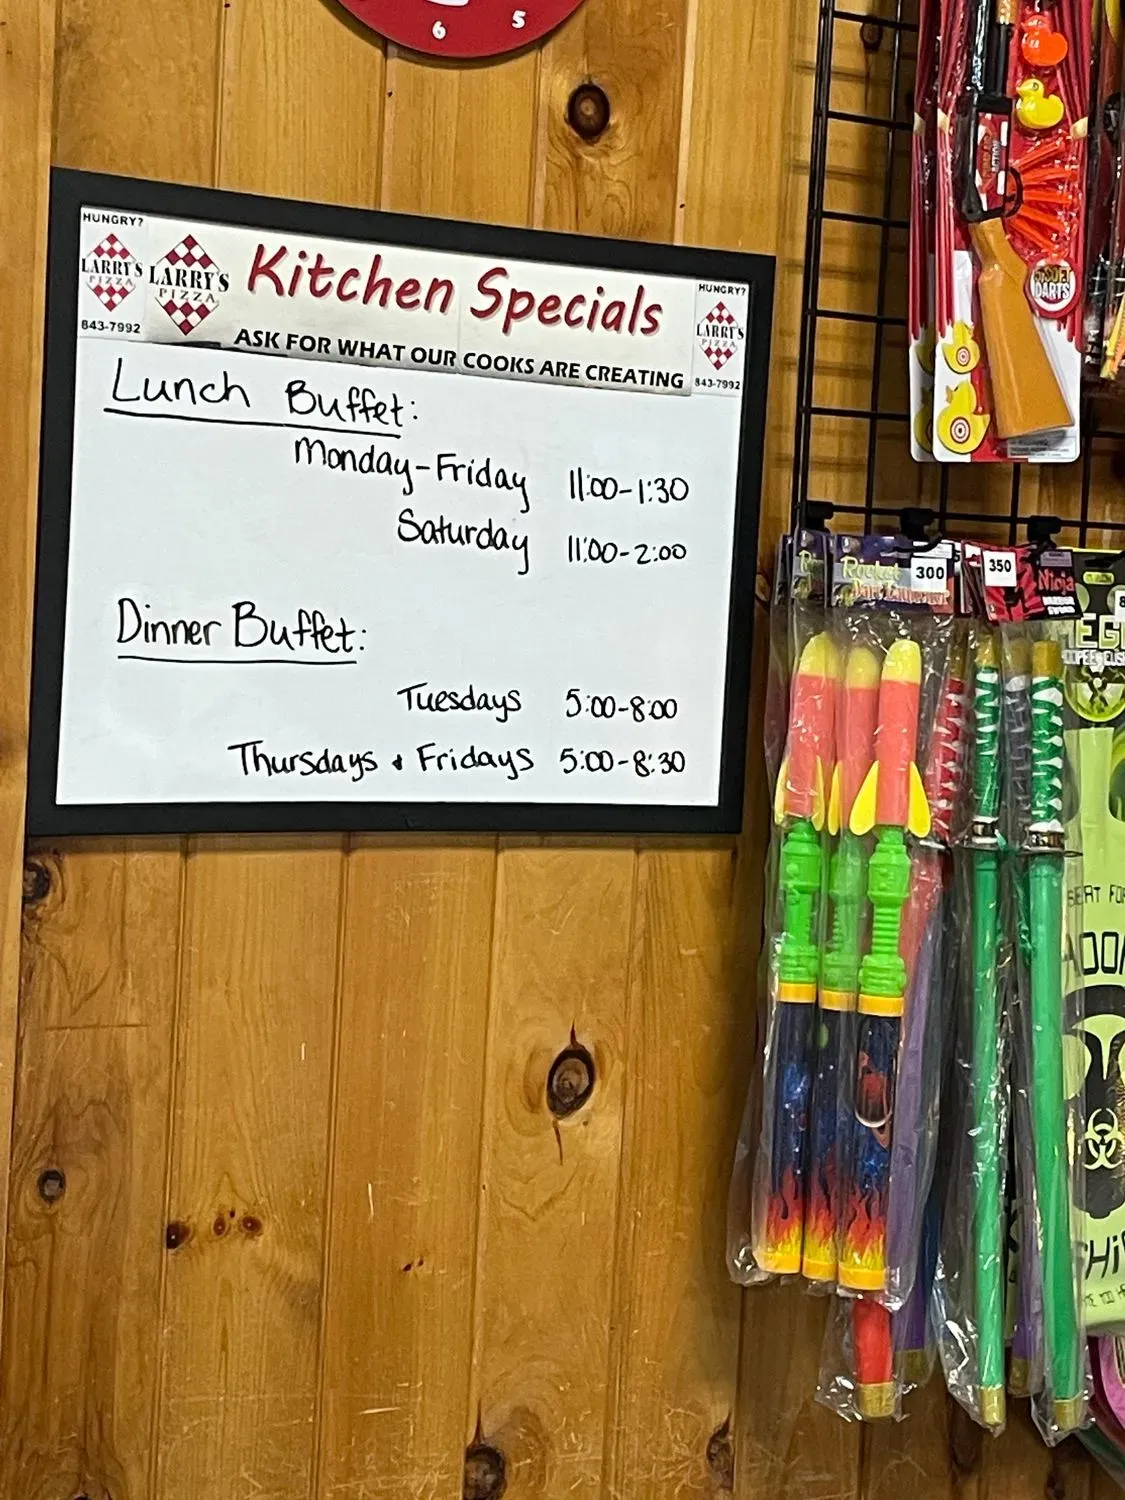 6 5
HUNGRY?
LARRY'S
PIZZA
843-7992
LARRY'S
PIZZA
Kitchen Specials
ASK FOR WHAT OUR COOKS ARE CREATING
HUNGRY?
LARRY'S
PIZZA
843-7992
Lunch Buffet:
Monday-Friday 11:00-1:30
Saturday 11:00-2:00
Dinner Buffet:
Tuesdays 5:00-8:00
Thursdays & Fridays 5:00-8:30
DARTS
Rocket
300
350
Ninja